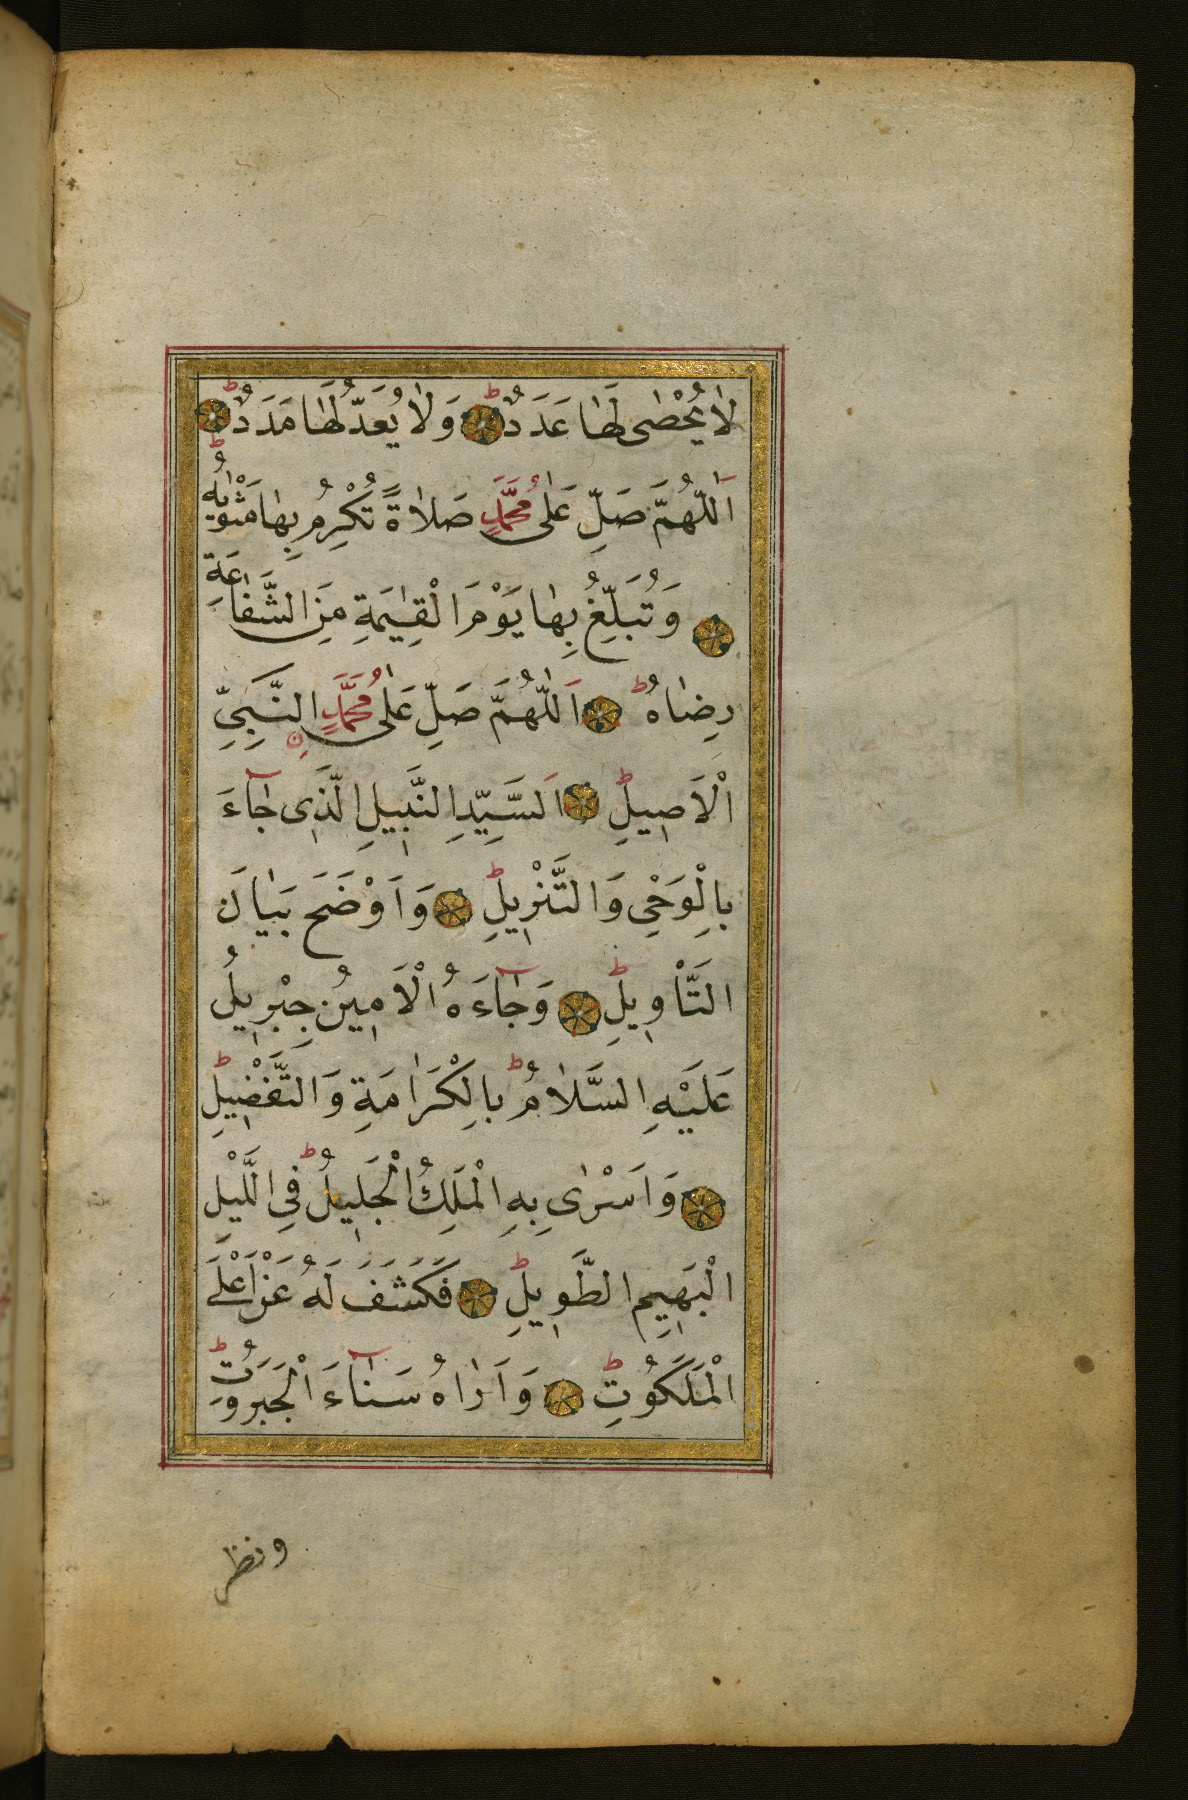 لَا يُحْصٰى لَهَا عَدَدٌ وَلَا يُعَدُّ لَهَا مَدَدٌ
اَللّٰهُمَّ صَلِّ عَلٰى مُحَمَّدٍ صَلَاةً تُكْرِمُ بِهَا مَثْوٰيهُ
وَتُبَلِّغُ بِهَا يَوْمَ الْقِيٰمَةِ مِنَ الشَّفَاعَةِ
رِضَاهُ اَللّٰهُمَّ صَلِّ عَلٰى مُحَمَّدٍ النَّبِيِّ
الْاَصِيلِ اَلسَّيِّدِ النَّبِيلِ الَّذِى جَآءَ
بِالْوَحْىِ وَالتَّنْزِيلِ وَاَوْضَحَ بَيَانَ
التَّاْوِيلِ وَجَآءَهُ الْاَمِينُ جِبْرِيلُ
عَلَيْهِ السَّلَامُ بِالْكَرَامَةِ وَالتَّفْضِيلِ
وَاَسْرٰى بِهِ الْمَلِكُ الْجَلِيلُ فِى اللَّيْلِ
الْبَهِيمِ الطَّوِيلِ فَكَشَفَ لَهُ عَنْ اَعْلَى
الْمَلَكُوتِ وَاَرَاهُ سَنَآءَ الْجَبَرُوتِ
ونظر